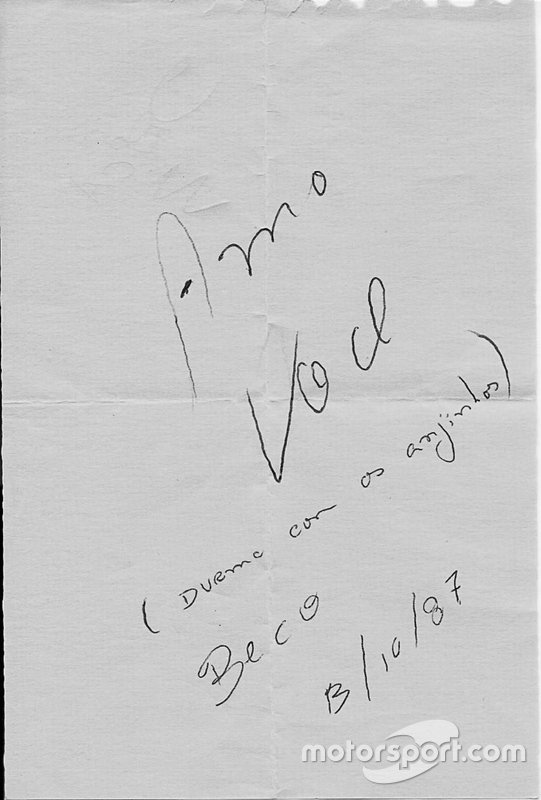 Amo
Você
(Durma com os anjinhos)
Beco
13/10/87
motorsport.com